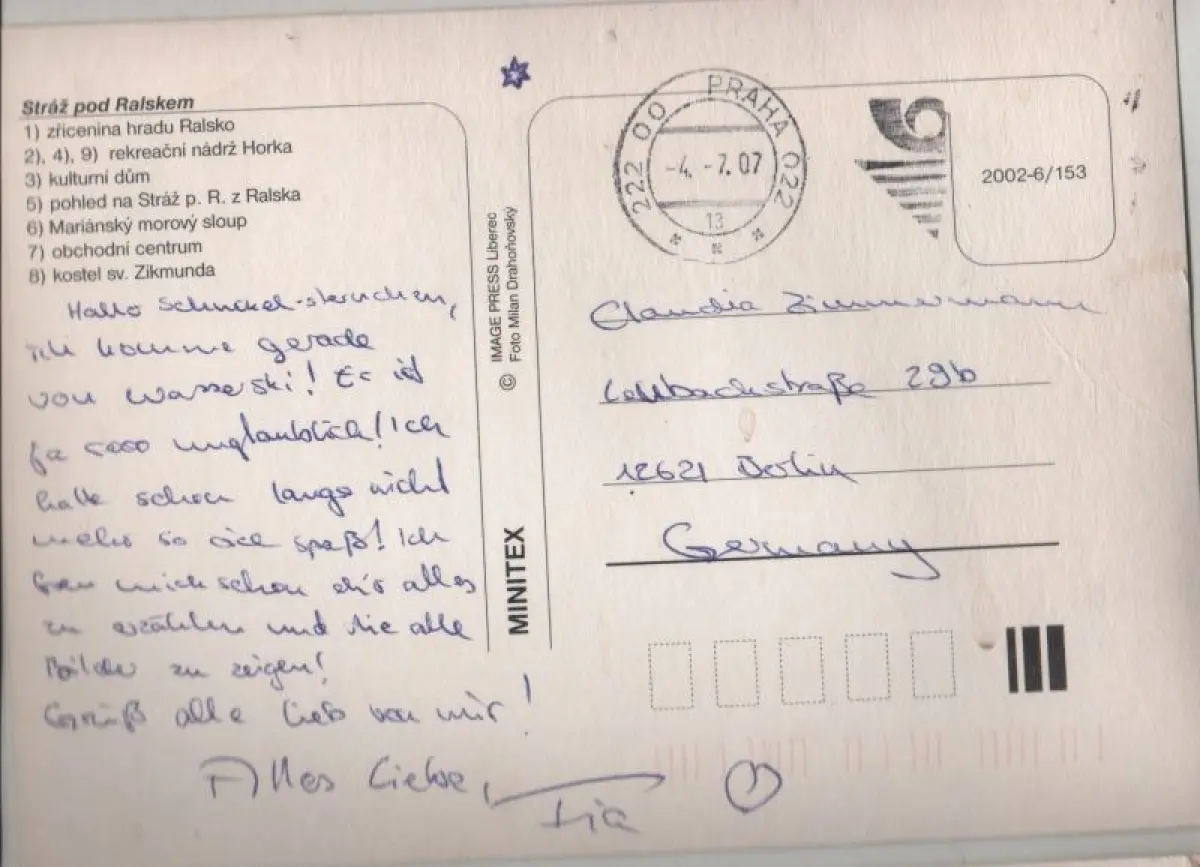 Stráž pod Ralskem
1) zřícenina hradu Ralsko
2), 4), 9) rekreační nádrž Horka
3) kulturní dům
5) pohled na Stráž p. R. z Ralska
6) Mariánský morový sloup
7) obchodní centrum
8) kostel sv. Zikmunda
Hallo
ich komme gerade
von Wasserski! Es ist
ja sooo unglaublich! Ich
hatte schon lange nicht
mehr so viel Spaß! Ich
freu mich schon dir alles
zu erzählen und die alle
Bilder zu zeigen!
Grüß alle lieb von mir!
Alles Liebe,
© IMAGE PRESS Liberec
Foto Milan Drahoňovský
MINITEX
222 00 PRAHA 022
-4.-7.07
13
2002-6/153
Claudia Zimmermann
29b
12621 Berlin
Germany